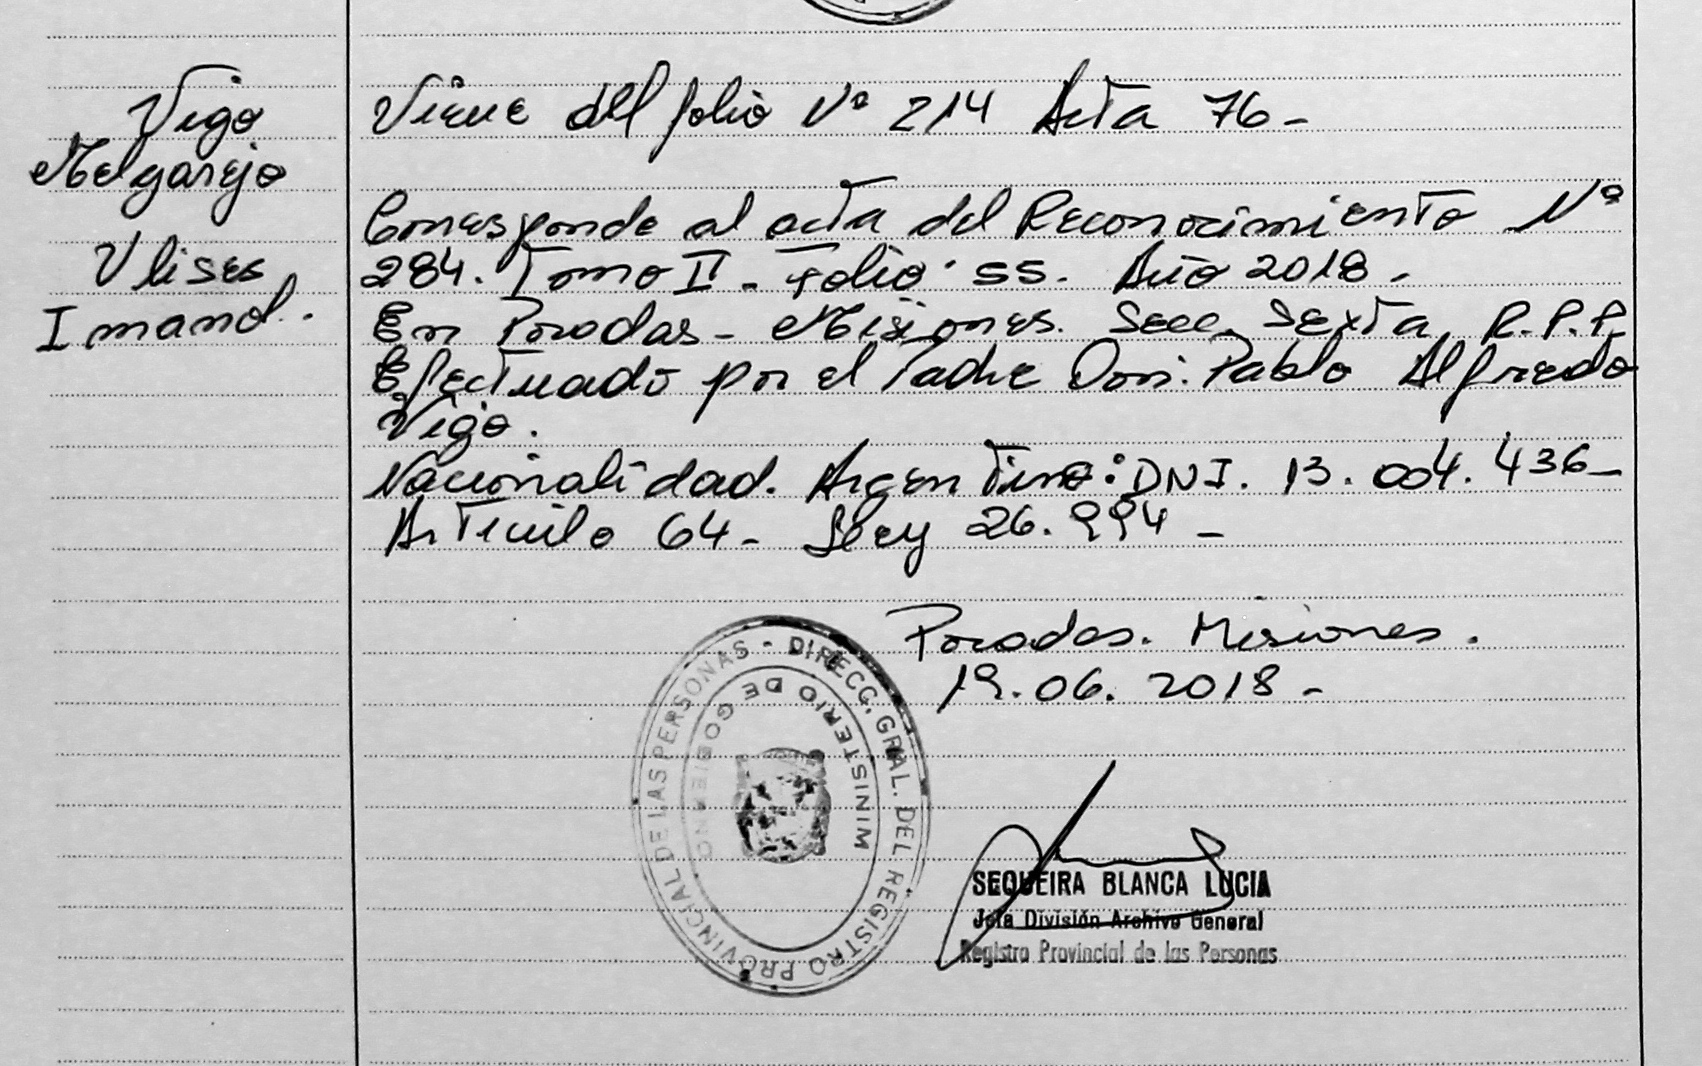 Vigo
Melgarejo
Ulises
Imanol.
Viene del folio Nº 214 Acta 76-
Corresponde al acta del Reconocimiento Nº
284. Tomo II - Folio 55. Año 2018.
En Posadas - Misiones. Secc. Sexta, R.P.P.
Efectuado por el Padre Don: Pablo Alfredo
Vigo.
Nacionalidad. Argentino: DNI. 13.004.436-
Articulo 64- Ley 26.994-
Posadas. Misiones.
19.06.2018-
DIRECC. GRAL. DEL REGISTRO PROVINCIAL DE LAS PERSONAS -
MINISTERIO DE GOBIERNO
SEQUEIRA BLANCA LUCIA
Jefa División Archivo General
Registro Provincial de las Personas